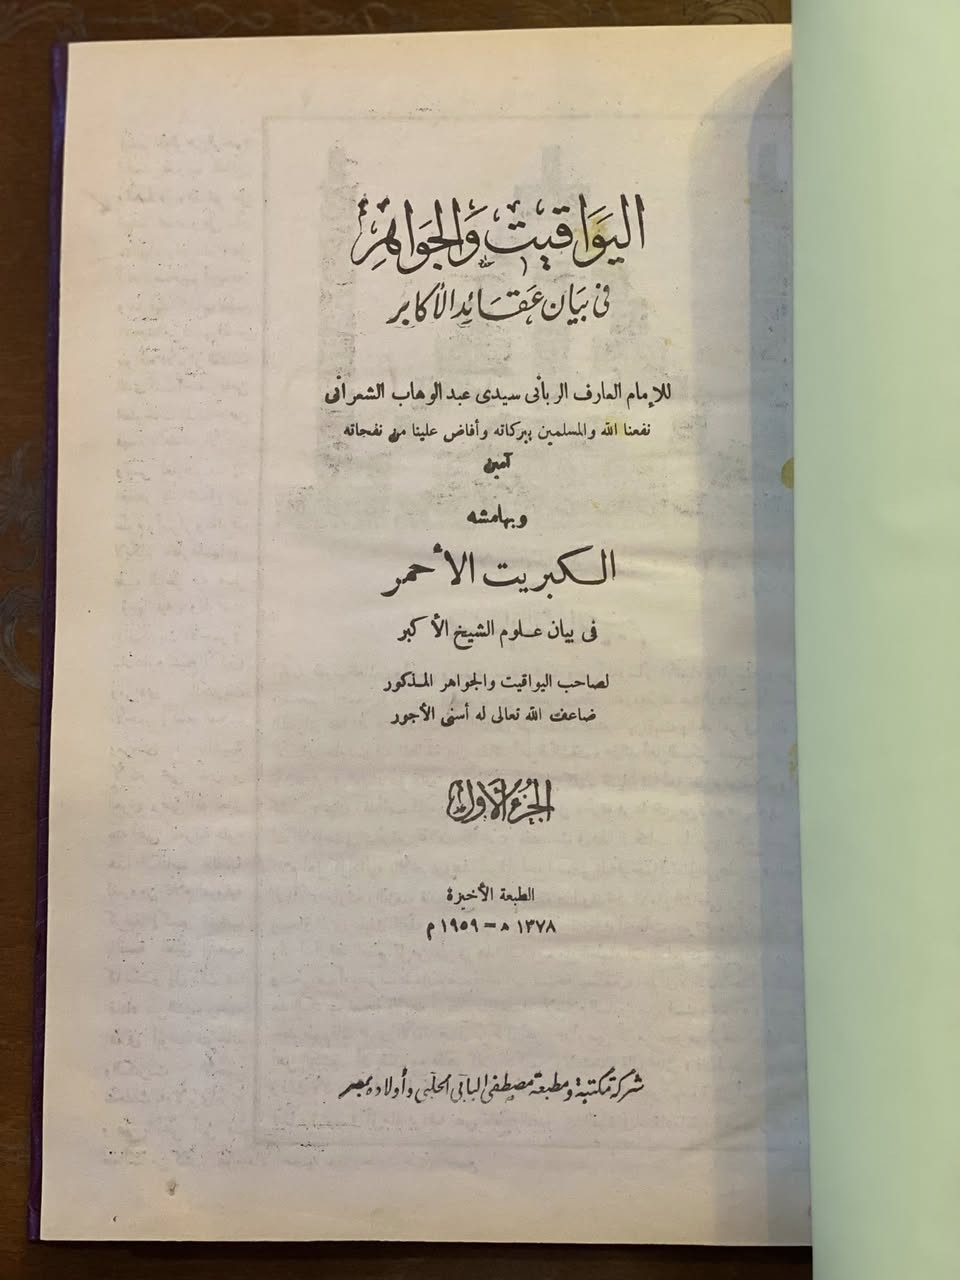 اليَوَاقيت وَالجَوَاهِر
فى بيَان عَقَائد الأكابر
للإمام العارف الربانى سيدى عبد الوهاب الشعرانى
نفعنا الله والمسلمين ببركاته وأفاض علينا من نفحاته
آمين
وبهامشه
الكبريت الأحمر
فى بيان علوم الشيخ الأكبر
لصاحب اليواقيت والجواهر المذكور
ضاعف الله تعالى له أسنى الأجور
الجُزءُ الأوّل
الطبعة الأخيرة
١٣٧٨ ه = ١٩٥٩ م
شركة مكتبة ومطبعة مصطفى البابى الحلبى وأولاده بمصر